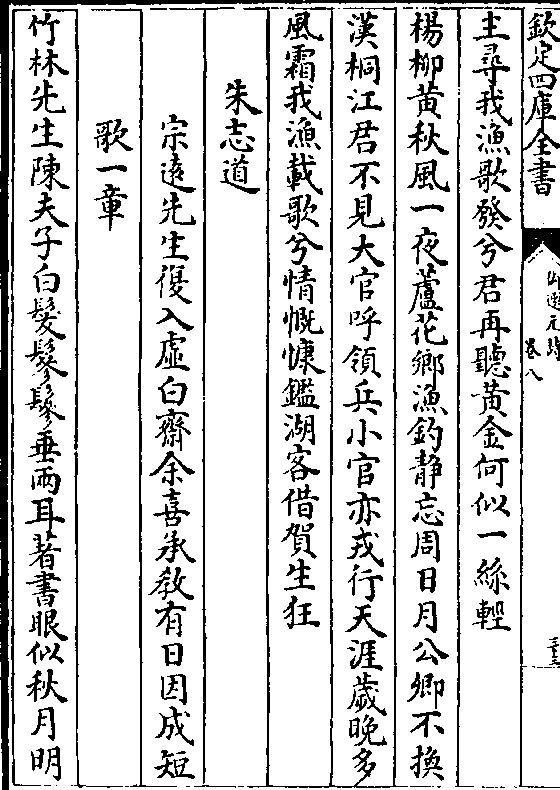 欽定四庫全書
卷八
主尋我漁歌發兮君再聽黃金何似一絲輕
楊柳黃秋風一夜蘆花鄉漁釣靜忘周日月公卿不換
漢桐江君不見大官呼領兵小官亦戎行天涯歲晚多
風霜我漁載歌兮情慨慷鑑湖客借賀生狂
朱志道
宗遠先生復入虛白齋余喜承敎有日因成短
歌一章
竹林先生陳夫子白髮鬖鬖垂兩耳著書眼似秋月明